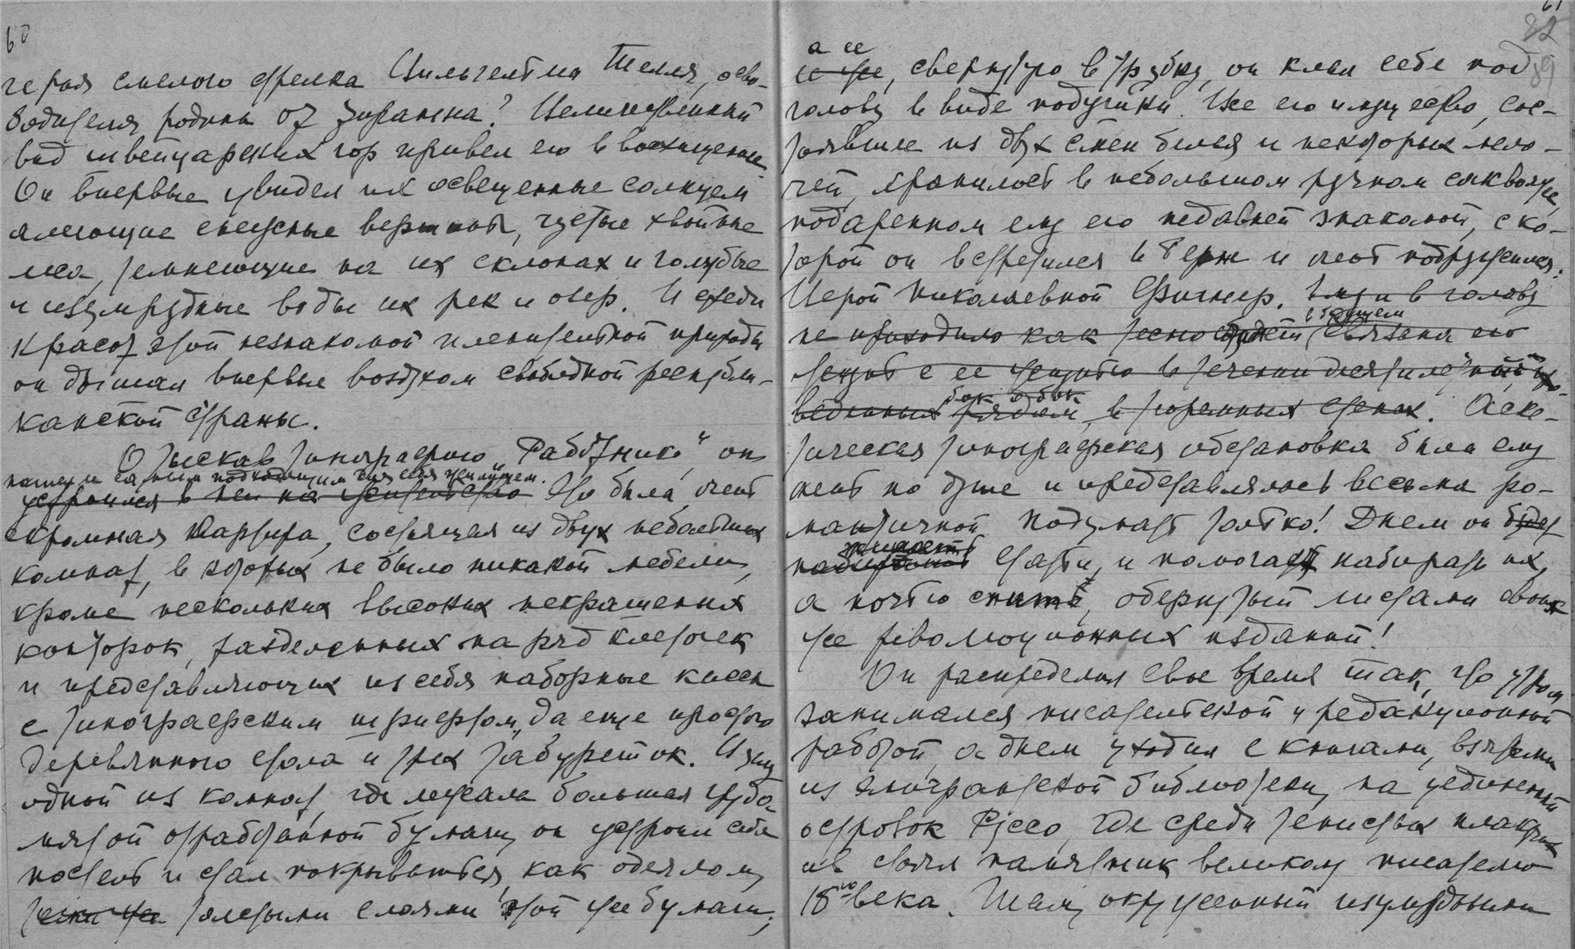 60
героя смелого стрелка Вильгельма Телля, осво-
бодителя родины от тирана? Величественный
вид швейцарских гор привел его в восхищение.
Он впервые увидел их освещенные солнцем
алеющие снежные вершины, густые хвойные
леса, темнеющие на их склонах и голубые
и изумрудные воды их рек и озер. И среди
красот этой незнакомой пленительной природы
он дышал впервые воздухом свободной республи-
канской страны.
Отыскав типографию „Работника“, он
нашел самым подходящим для себя жилищем.
устроился в ней на жительство Это была очень
скромная квартира, состоящая из двух небольших
комнат, в которых не было никакой мебели,
кроме нескольких высоких некрашеных
конторок, разделенных на ряд клеточек
и представляющих из себя наборные кассы
с типографским шрифтом, да еще простого
деревянного стола и трех табуреток. В углу
одной из комнат, где лежала большая груда
мятой отработанной бумаги, он устроил себе
постель и стал покрываться, как одеялом,
толстыми слоями этой же бумаги;
61
82
89
а ее
ее же, свернутую в трубку, он клал себе под
голову в виде подушки. Все его имущество, сос-
тоявшее из двух смен белья и некоторых мело-
чей, хранилось в небольшом ручном саквояже,
подаренном ему его недавней знакомой, с ко-
торой он встретился в Берне и очень подружился:
Верой Николаевной Фигнер. Ему и в голову
в будущем
не приходило как тесно будет связана его
жизнь с ее жизнью в течении десятилетий,
бок о бок
рядом, в тюремных стенах. Аске-
тическая типографская обстановка была ему
очень по душе и представлялась весьма ро-
мантичной. Подумать только! Днем он будет
статьи, и помогать набирать их,
а ночью спать, обернутый листами своих
же революционных изданий!
Он распределил свое время так, что утром
занимался писательской и редакционной
работой, а днем уходил с книгами, взятыми
из эмигрантской библиотеки, на уединенный
островок Руссо, где среди тенистых
ив стоял памятник великому писателю
18го века. Там, окруженный изумрудными